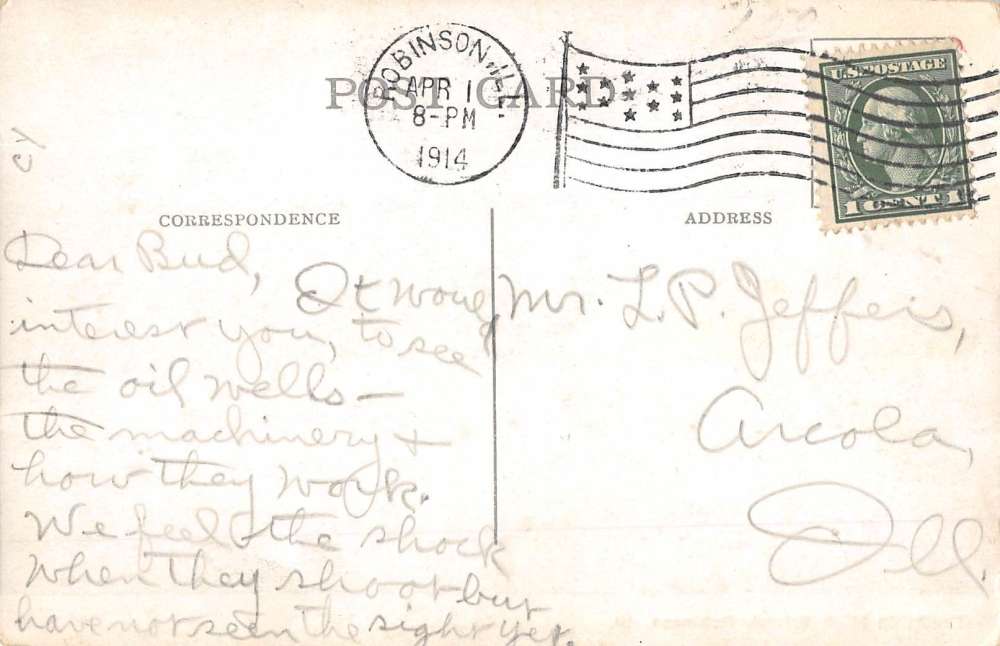 ROBINSON, ILL.
APR 1
8-PM
1914
POST CARD
U.S. POSTAGE
1 CENT 1
CORRESPONDENCE
Dear Bud,
It
interest you, to see
the oil wells—
the machinery &
how they work.
We feel the shock
when they shoot but
have not seen the sight yet.
ADDRESS
Mr. L. P. Jeffers,
Arcola,
Ill.